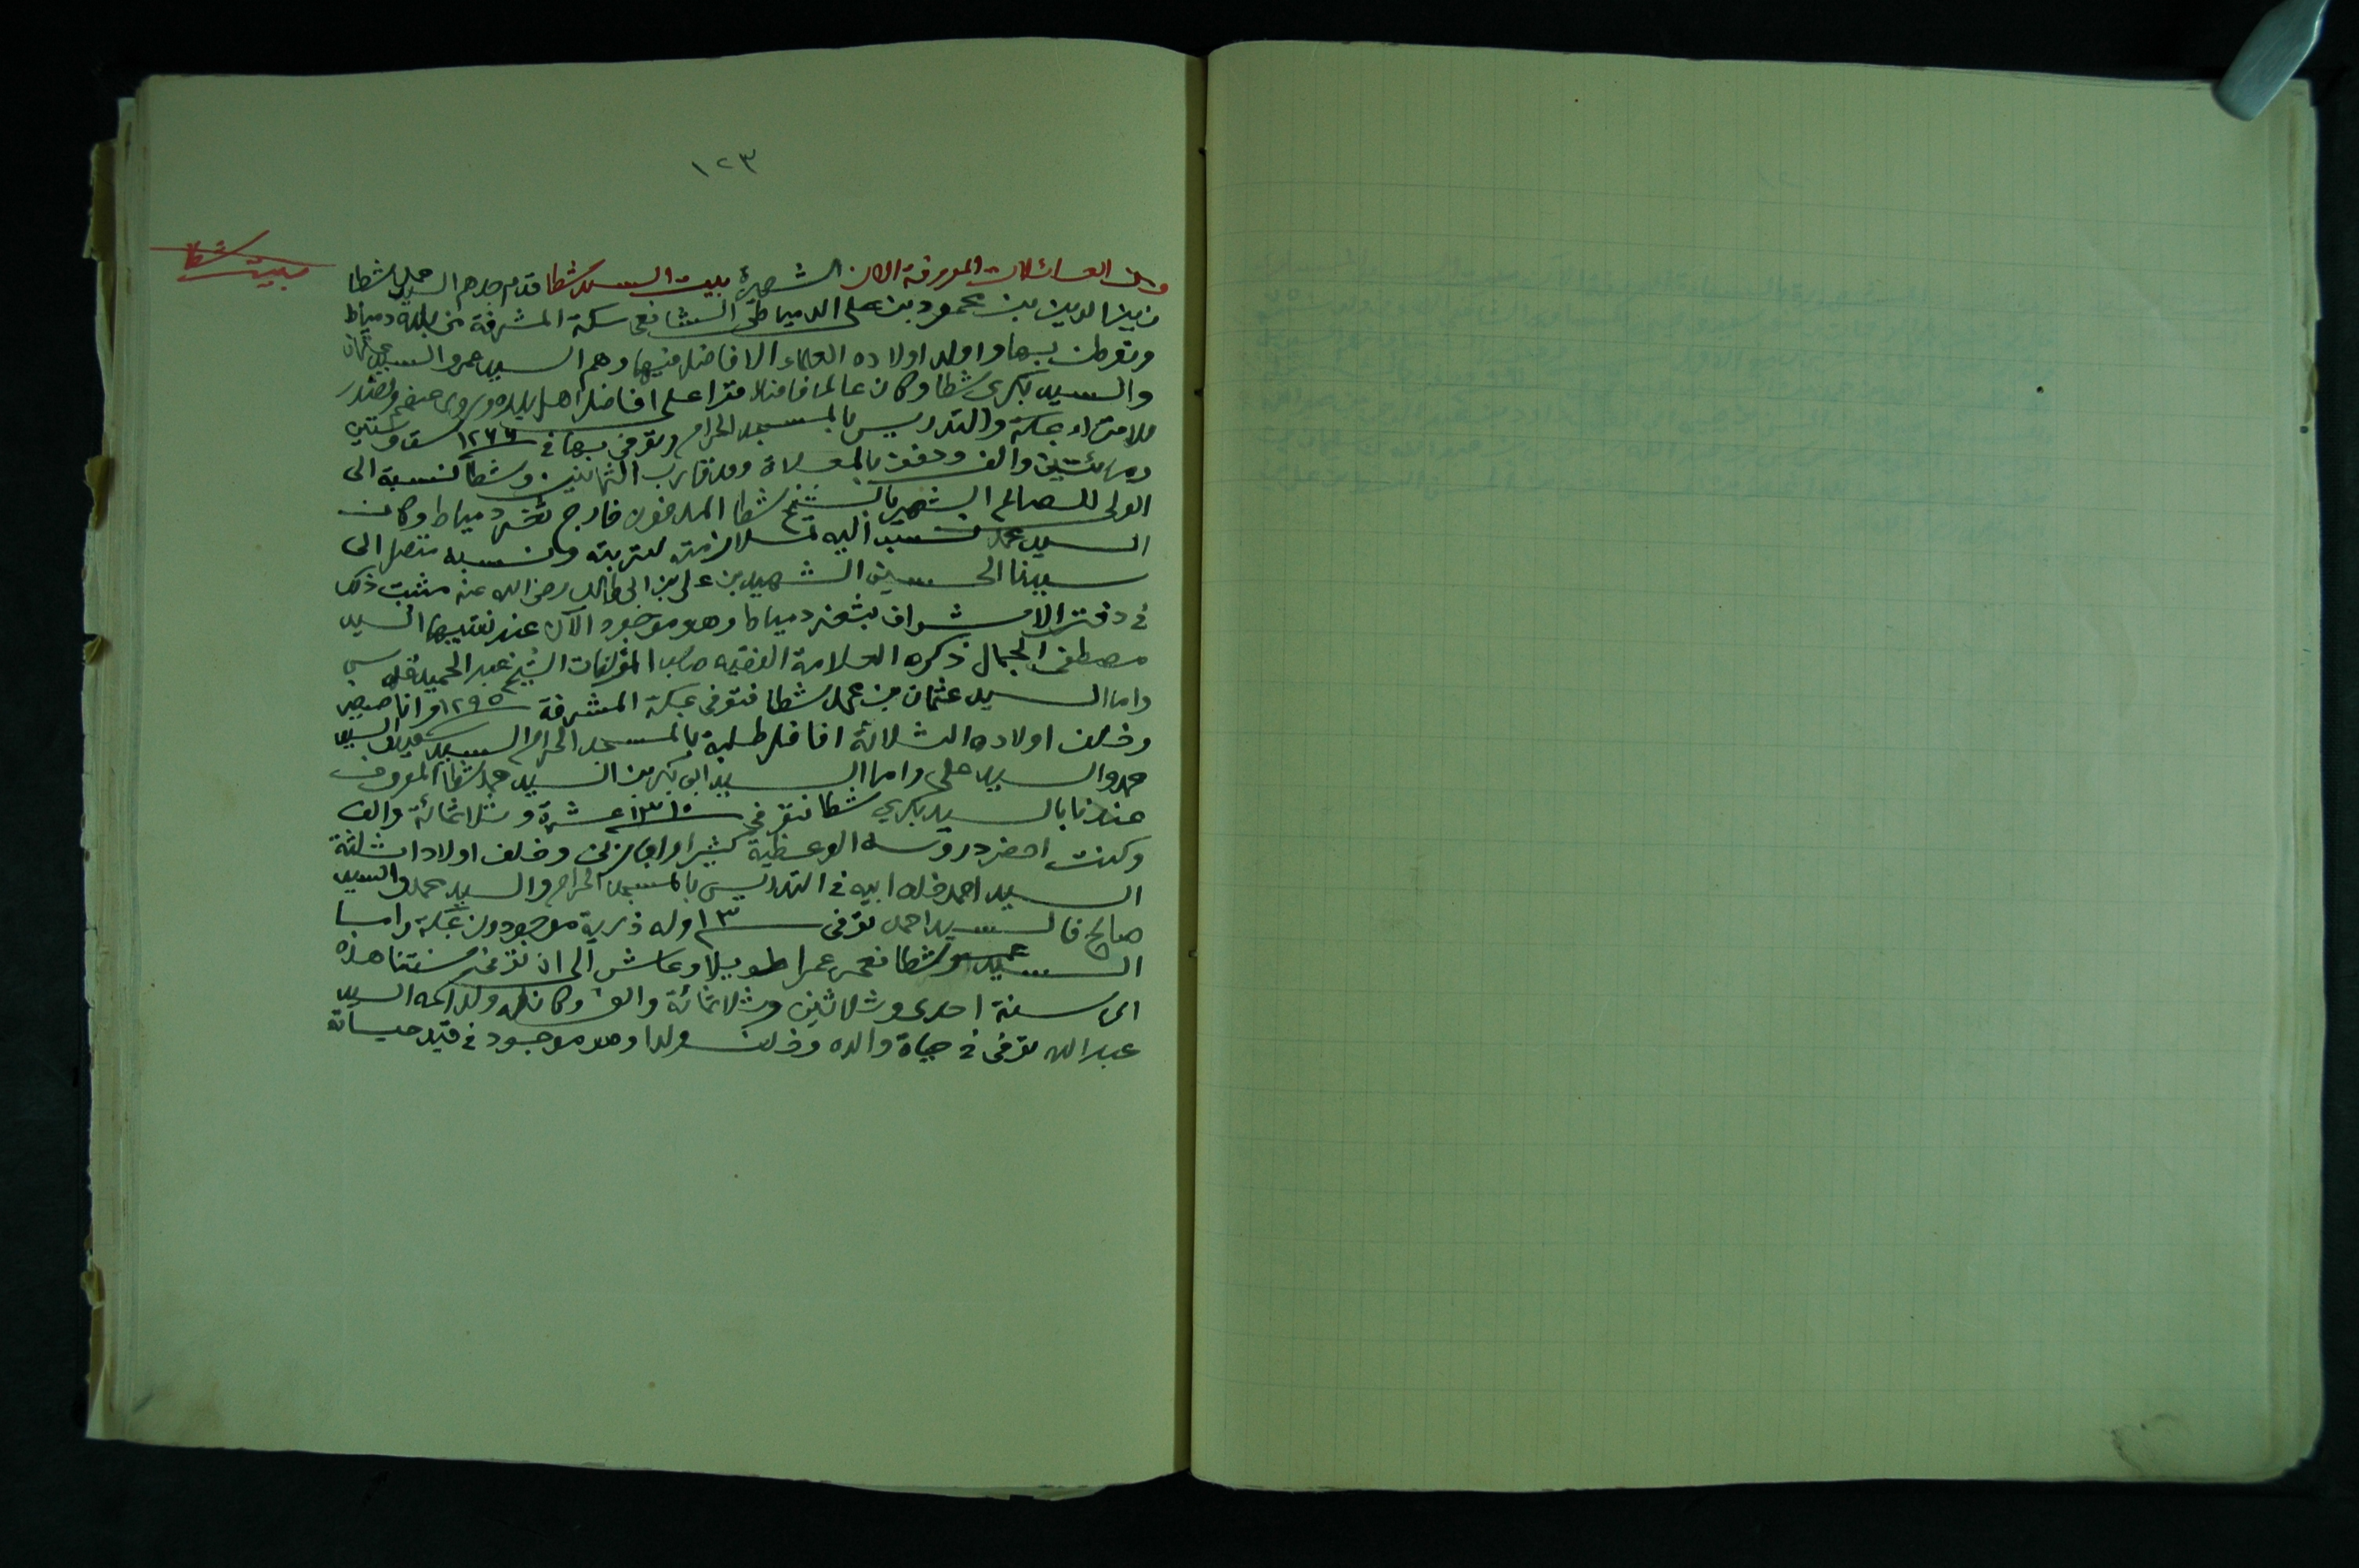 ١٢٣
بيت شطا
ومن العائلات المعروفة الان الشهيرة ببيت السيد شطا قدم جدهم السيد محمد شطا
زين الدين بن محمود بن علي الدمياطي الشافعي سكة المشرفة من بلده دمياط
وتوطن بها واولد اولاده العلماء الافاضل فيها وهم السيد عمر والسيد عثمان
والسيد بكري شطا وكان عالما فاضلا قرا على افاضل اهل بلده وروى عنهم وتصدر
للاقراء بمكة والتدريس بالمسجد الحرام وتوفي بها في ١٢٦٦ ست وستين
ومائتين والف ودفن بالمعلاة وقد قارب الثمانين وشطا نسبة الى
الولي الصالح الشهير بالشيخ شطا المدفون خارج ثغر دمياط وكان
السيد محمد نسب اليه لملازمته لتربته ونسبه متصل الى
سيدنا الحسين الشهيد بن علي بن ابي طالب رضي الله عنه مثبت ذلك
في دفتر الاشراف بثغر دمياط وهو موجود الآن عند نقيبها السيد
مصطفى الجمال ذكره العلامة الفقيه صاحب المؤلفات الشيخ عبد الحميد قدس
واما السيد عثمان بن محمد شطا فتوفي بمكة المشرفة ١٢٩٥ وانا صغير
وخلف اولاده الثلاثة افاضل طلبة بالمسجد الحرام السيد سعيد والسيد
حمد والسيد علي واما السيد ابي بكر بن السيد محمد شطا المعروف
عندنا بالسيد بكري شطا فتوفي ١٣١٠ عشرة وثلاثمائة والف
وكنت احضر دروسه الوعظية كثيرا وخلف اولادا ثلثة
السيد احمد خلف ابيه في التدريس بالمسجد الحرام والسيد حمد والسيد
صالح فالسيد احمد توفي ١٣ وله ذرية موجودون بمكة واما
السيد عمر شطا فعمر عمرا طويلا وعاش الى ان سنتنا هذه
اى سنة احدى وثلاثين وثلاثمائة والف وكان له ولد اسمه السيد
عبد الله توفي في حياة والده وخلف ولدا وهو موجود في قيد حياته